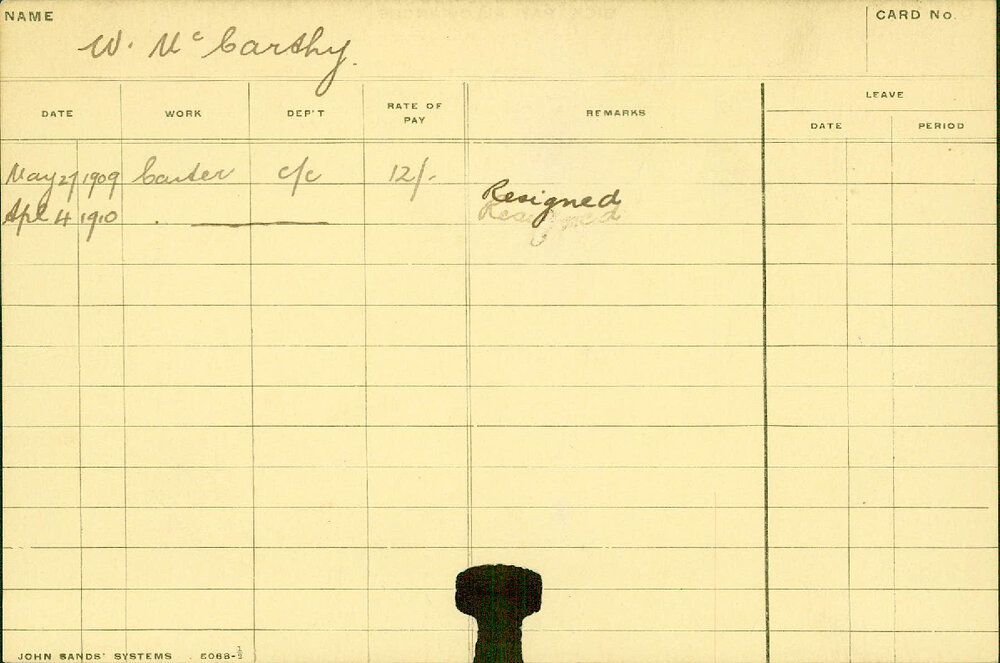 NAME
W. McCarthy.
CARD No.
DATE WORK DEP'T RATE OF PAY REMARKS LEAVE
DATE PERIOD
May 27 1909 Carter c/c 12/-
Apl 4 1910 Resigned
Resigned
JOHN SANDS' SYSTEMS